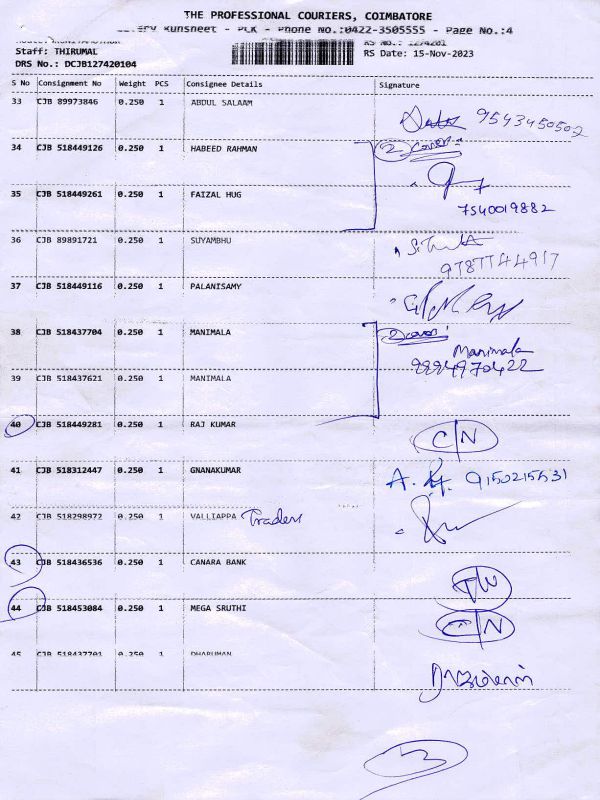 THE PROFESSIONAL COURIERS, COIMBATORE
Runsheet - PLK - Phone No.:0422-3505555 - Page No.:4
Staff: THIRUMAL
RS Date: 15-Nov-2023
DRS No.: DCJB127420104
S No Consignment No Weight PCS Consignee Details Signature
33 CJB 89973846 0.250 1 ABDUL SALAAM
9543450502
34 CJB 518449126 0.250 1 HABEED RAHMAN 2 cover:
35 CJB 518449261 0.250 1 FAIZAL HUG
7540019882
36 CJB 89891721 0.250 1 SUYAMBHU
9787744917
37 CJB 518449116 0.250 1 PALANISAMY
38 CJB 518437704 0.250 1 MANIMALA 2 cover:
Manimala
9994970422
39 CJB 518437621 0.250 1 MANIMALA
40 CJB 518449281 0.250 1 RAJ KUMAR C/N
41 CJB 518312447 0.250 1 GNANAKUMAR 9150215531
42 CJB 518298972 0.250 1 VALLIAPPA Traders
43 CJB 518436536 0.250 1 CANARA BANK
44 CJB 518453084 0.250 1 MEGA SRUTHI C/N
45 CJB 518437701 0.250 1 DHARUMAN
3